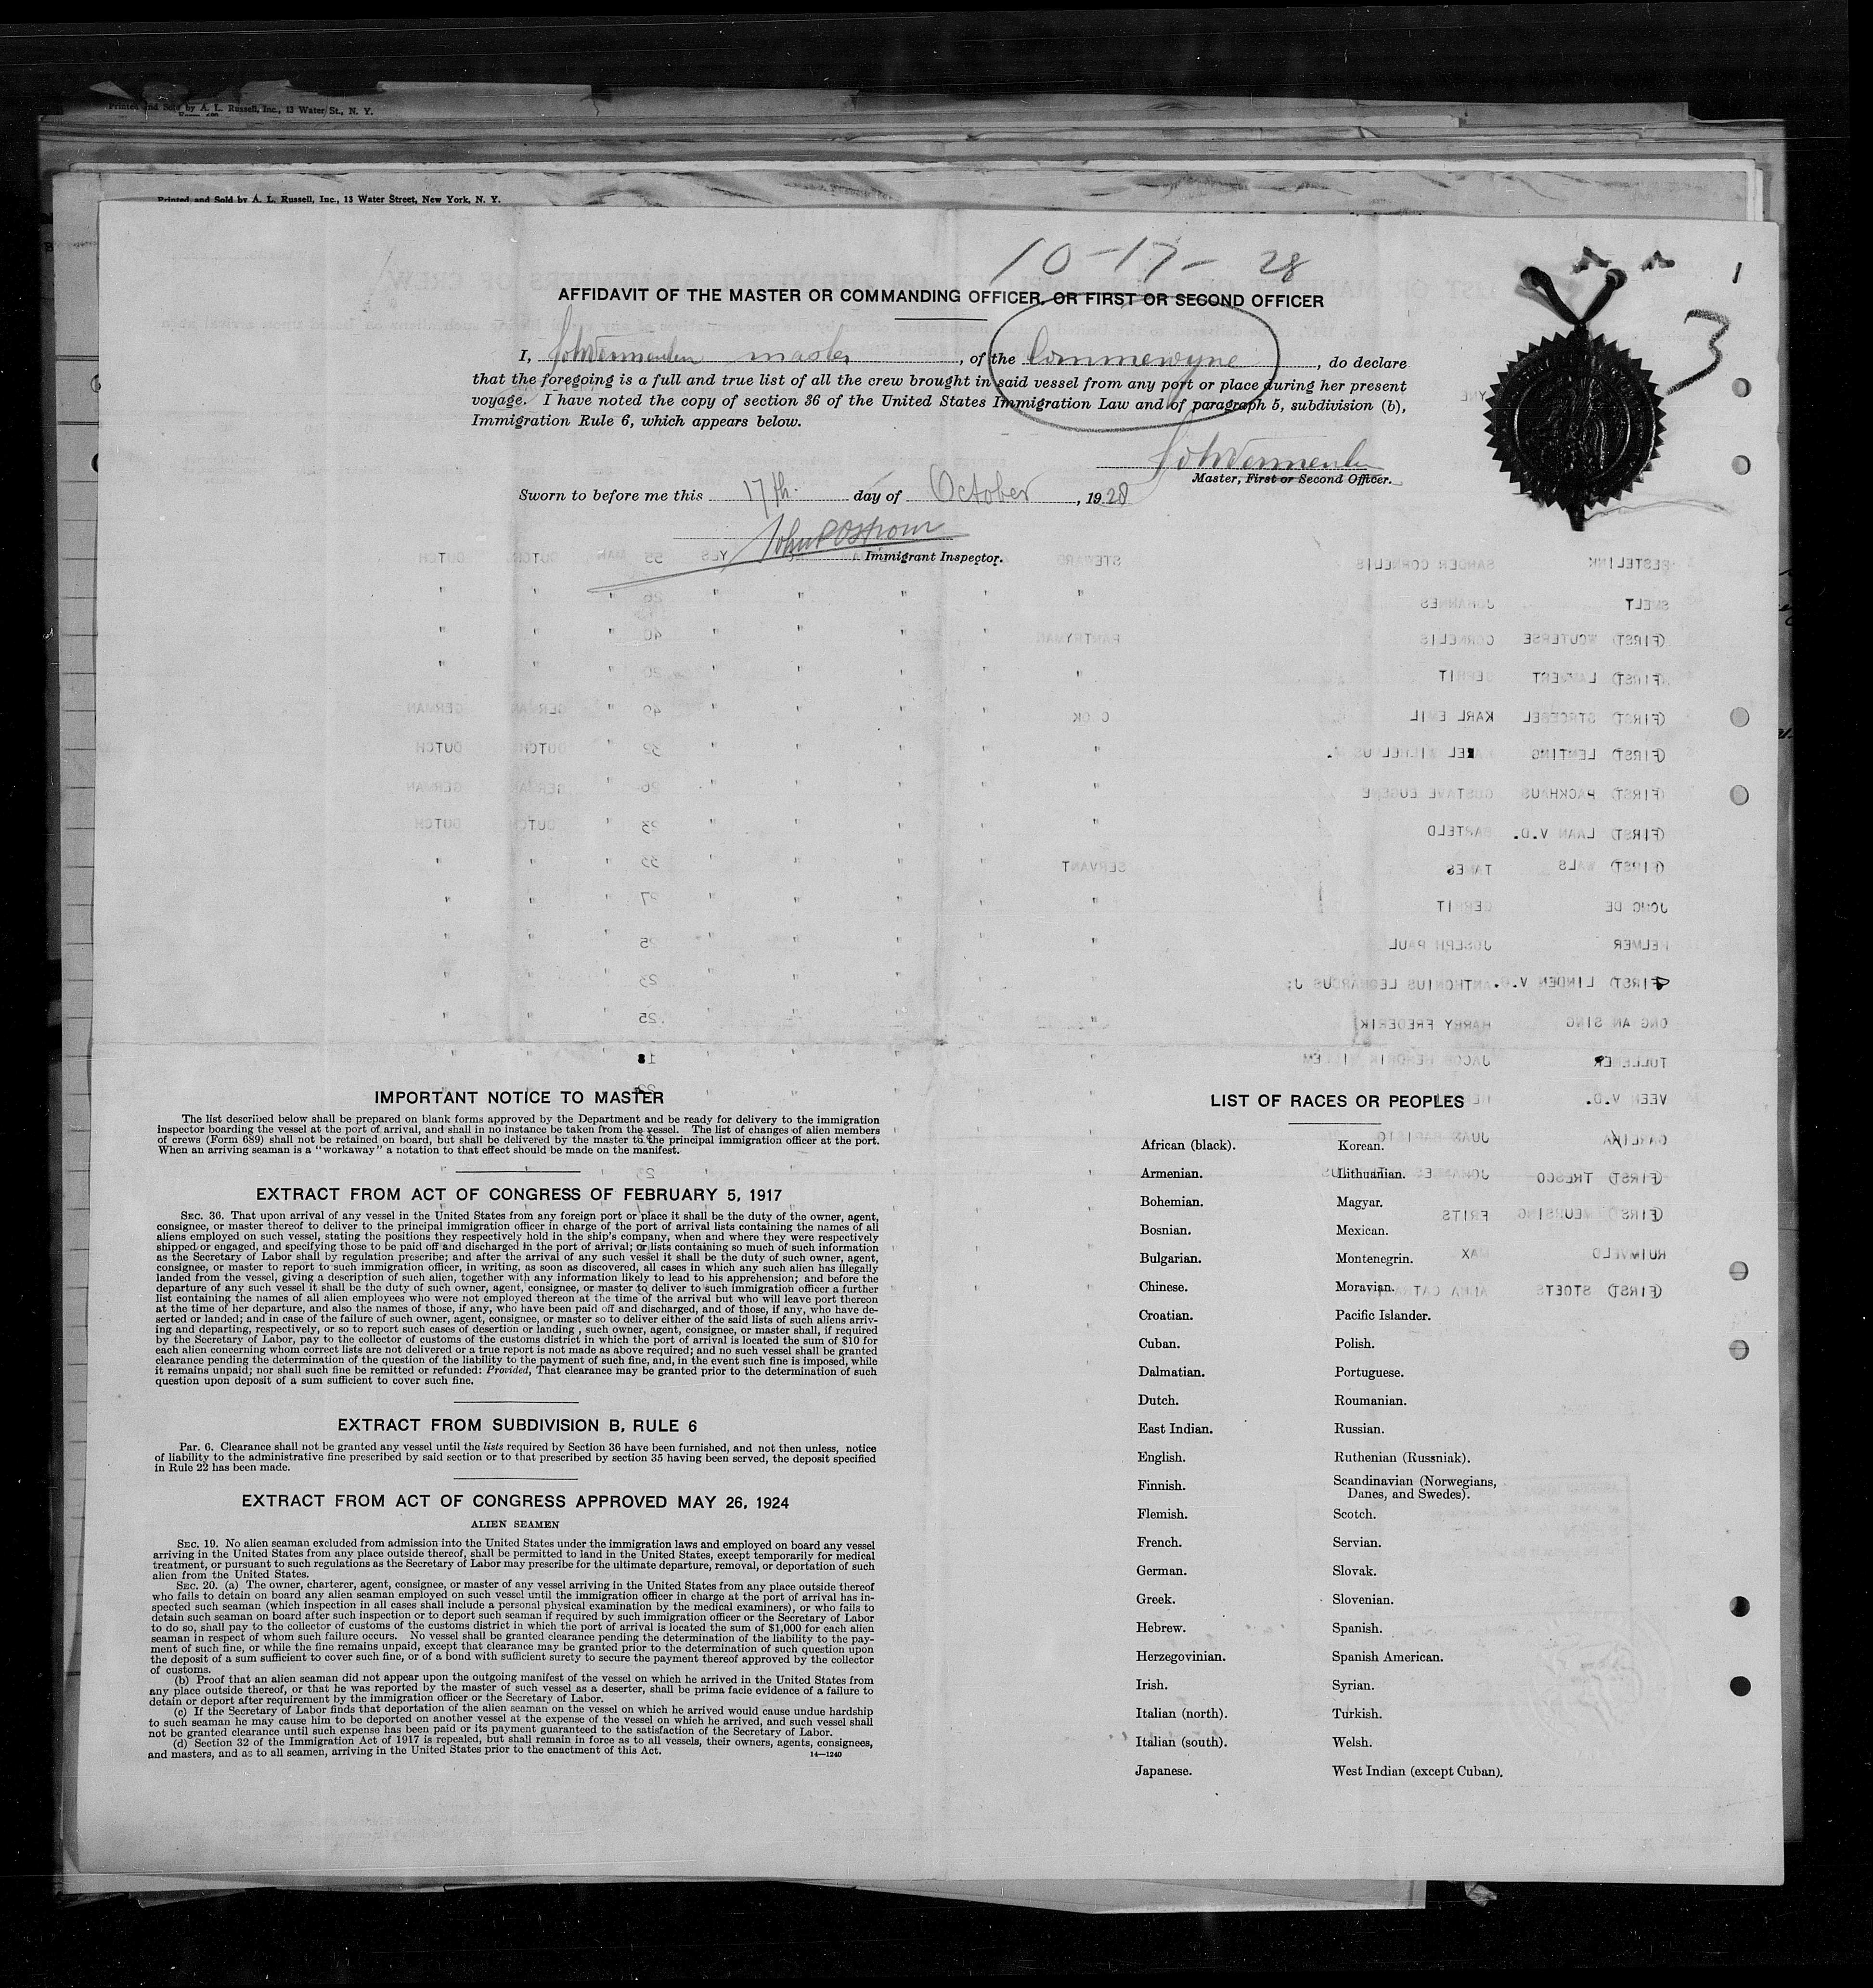 Printed and Sold by A. L. Russell, Inc., 13 Water St., N. Y.
Printed and Sold by A. L. Russell, Inc., 13 Water Street, New York, N. Y.
10-17-28
1
3
AFFIDAVIT OF THE MASTER OR COMMANDING OFFICER, OR FIRST OR SECOND OFFICER
I, master, of the Commewyne, do declare
that the foregoing is a full and true list of all the crew brought in said vessel from any port or place during her present
voyage. I have noted the copy of section 36 of the United States Immigration Law and of paragraph 5, subdivision (b),
Immigration Rule 6, which appears below.
Master, First or Second Officer.
Sworn to before me this 17th. day of October, 1928
Immigrant Inspector.
IMPORTANT NOTICE TO MASTER
The list described below shall be prepared on blank forms approved by the Department and be ready for delivery to the immigration
inspector boarding the vessel at the port of arrival, and shall in no instance be taken from the vessel. The list of changes of alien members
of crews (Form 689) shall not be retained on board, but shall be delivered by the master to the principal immigration officer at the port.
When an arriving seaman is a "workaway" a notation to that effect should be made on the manifest.
EXTRACT FROM ACT OF CONGRESS OF FEBRUARY 5, 1917
SEC. 36. That upon arrival of any vessel in the United States from any foreign port or place it shall be the duty of the owner, agent,
consignee, or master thereof to deliver to the principal immigration officer in charge of the port of arrival lists containing the names of all
aliens employed on such vessel, stating the positions they respectively hold in the ship's company, when and where they were respectively
shipped or engaged, and specifying those to be paid off and discharged in the port of arrival; or lists containing so much of such information
as the Secretary of Labor shall by regulation prescribe; and after the arrival of any such vessel it shall be the duty of such owner, agent,
consignee, or master to report to such immigration officer, in writing, as soon as discovered, all cases in which any such alien has illegally
landed from the vessel, giving a description of such alien, together with any information likely to lead to his apprehension; and before the
departure of any such vessel it shall be the duty of such owner, agent, consignee, or master to deliver to such immigration officer a further
list containing the names of all alien employees who were not employed thereon at the time of the arrival but who will leave port thereon
at the time of her departure, and also the names of those, if any, who have been paid off and discharged, and of those, if any, who have de-
serted or landed; and in case of the failure of such owner, agent, consignee, or master so to deliver either of the said lists of such aliens arriv-
ing and departing, respectively, or so to report such cases of desertion or landing, such owner, agent, consignee, or master shall, if required
by the Secretary of Labor, pay to the collector of customs of the customs district in which the port of arrival is located the sum of $10 for
each alien concerning whom correct lists are not delivered or a true report is not made as above required; and no such vessel shall be granted
clearance pending the determination of the question of the liability to the payment of such fine, and, in the event such fine is imposed, while
it remains unpaid; nor shall such fine be remitted or refunded: Provided, That clearance may be granted prior to the determination of such
question upon deposit of a sum sufficient to cover such fine.
EXTRACT FROM SUBDIVISION B, RULE 6
Par. 6. Clearance shall not be granted any vessel until the lists required by Section 36 have been furnished, and not then unless, notice
of liability to the administrative fine prescribed by said section or to that prescribed by section 35 having been served, the deposit specified
in Rule 22 has been made.
EXTRACT FROM ACT OF CONGRESS APPROVED MAY 26, 1924
ALIEN SEAMEN
SEC. 19. No alien seaman excluded from admission into the United States under the immigration laws and employed on board any vessel
arriving in the United States from any place outside thereof, shall be permitted to land in the United States, except temporarily for medical
treatment, or pursuant to such regulations as the Secretary of Labor may prescribe for the ultimate departure, removal, or deportation of such
alien from the United States.
SEC. 20. (a) The owner, charterer, agent, consignee, or master of any vessel arriving in the United States from any place outside thereof
who fails to detain on board any alien seaman employed on such vessel until the immigration officer in charge at the port of arrival has in-
spected such seaman (which inspection in all cases shall include a personal physical examination by the medical examiners), or who fails to
detain such seaman on board after such inspection or to deport such seaman if required by such immigration officer or the Secretary of Labor
to do so, shall pay to the collector of customs of the customs district in which the port of arrival is located the sum of $1,000 for each alien
seaman in respect of whom such failure occurs. No vessel shall be granted clearance pending the determination of the liability to the pay-
ment of such fine, or while the fine remains unpaid, except that clearance may be granted prior to the determination of such question upon
the deposit of a sum sufficient to cover such fine, or of a bond with sufficient surety to secure the payment thereof approved by the collector
of customs.
(b) Proof that an alien seaman did not appear upon the outgoing manifest of the vessel on which he arrived in the United States from
any place outside thereof, or that he was reported by the master of such vessel as a deserter, shall be prima facie evidence of a failure to
detain or deport after requirement by the immigration officer or the Secretary of Labor.
(c) If the Secretary of Labor finds that deportation of the alien seaman on the vessel on which he arrived would cause undue hardship
to such seaman he may cause him to be deported on another vessel at the expense of the vessel on which he arrived, and such vessel shall
not be granted clearance until such expense has been paid or its payment guaranteed to the satisfaction of the Secretary of Labor.
(d) Section 32 of the Immigration Act of 1917 is repealed, but shall remain in force as to all vessels, their owners, agents, consignees,
and masters, and as to all seamen, arriving in the United States prior to the enactment of this Act.
14—1240
LIST OF RACES OR PEOPLES
African (black).
Armenian.
Bohemian.
Bosnian.
Bulgarian.
Chinese.
Croatian.
Cuban.
Dalmatian.
Dutch.
East Indian.
English.
Finnish.
Flemish.
French.
German.
Greek.
Hebrew.
Herzegovinian.
Irish.
Italian (north).
Italian (south).
Japanese.
Korean.
Lithuanian.
Magyar.
Mexican.
Montenegrin.
Moravian.
Pacific Islander.
Polish.
Portuguese.
Roumanian.
Russian.
Ruthenian (Russniak).
Scandinavian (Norwegians,
Danes, and Swedes).
Scotch.
Servian.
Slovak.
Slovenian.
Spanish.
Spanish American.
Syrian.
Turkish.
Welsh.
West Indian (except Cuban).